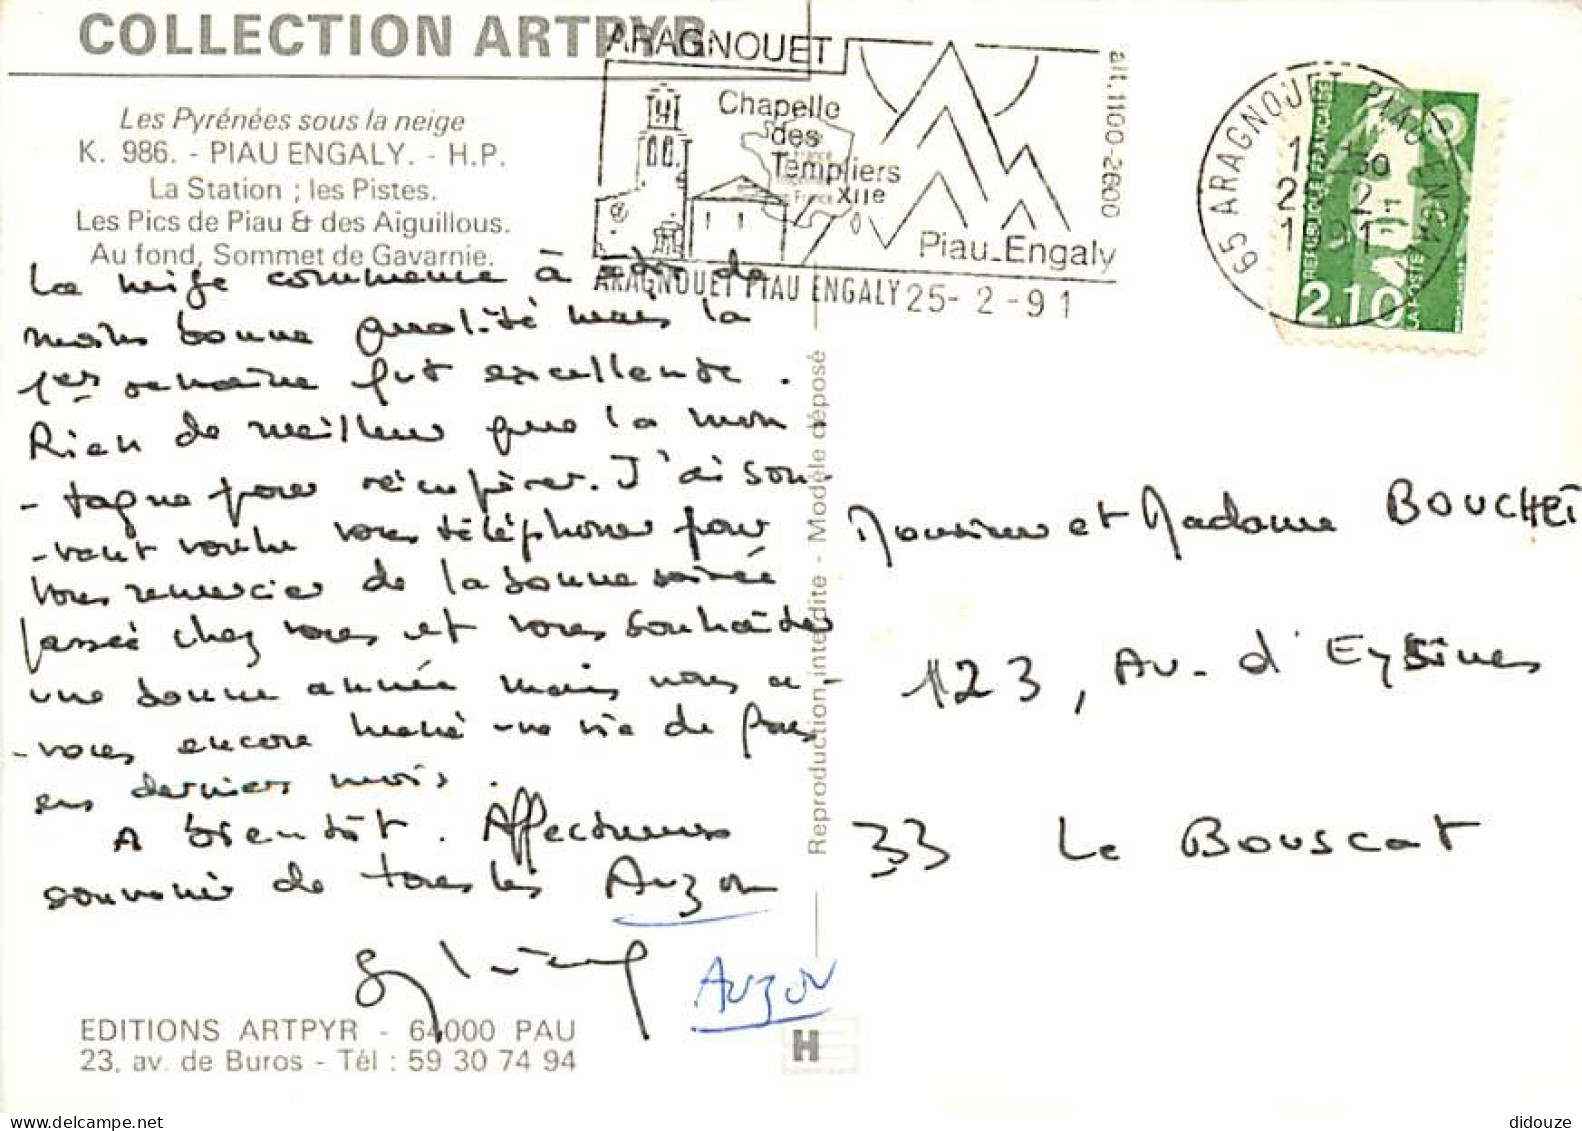 COLLECTION ARTPYR
Les Pyrénées sous la neige
K. 986. - PIAU ENGALY. - H.P.
La Station ; les Pistes.
Les Pics de Piau & des Aiguillous.
Au fond, Sommet de Gavarnie.
ARAGNOUET
Chapelle
des
Templiers
XIIe
Piau_Engaly
alt.1100-2600
ARAGNOUET PIAU ENGALY 25-2-91
65 ARAGNOUET PIAU ENGALY
REPUBLIQUE FRANÇAISE
2.10
LA POSTE
La neige commence à de
moins bonne qualité mais la
1er semaine fut excellente.
Rien de meilleur que la mon
-tagne pour récupérer. J'ai sou-
-vent voulu vous téléphoner pour
vous remercier de la bonne soirée
passée chez vous et vous souhaiter
une bonne année mais nous a-
-vons encore mené une vie de fous
ces derniers mois.
A bientôt. Affectueux
souvenir de tous les Auzou
AUZOU
Reproduction interdite - Modèle déposé
Monsieur et Madame BOUCHET
123, Av. d'Eysines
33 Le Bouscat
EDITIONS ARTPYR - 64000 PAU
23, av. de Buros - Tél : 59 30 74 94
H
didouze